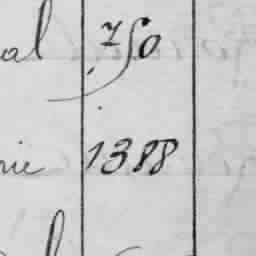 al 750
rie 1388